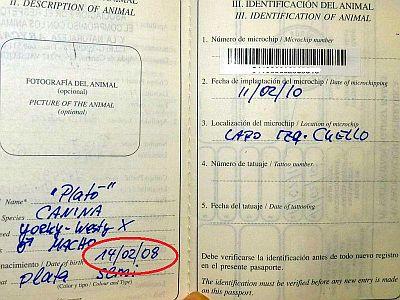 II. DESCRIPTION OF ANIMAL
FOTOGRAFÍA DEL ANIMAL
(opcional)
PICTURE OF THE ANIMAL
(optional)
Name*
"Plató"
Species
CANINA
yorky-westy X
MACHO
nacimiento / Date of birth
14/02/08
plata semi
(Color y tipo / Colour and Type)
III. IDENTIFICACIÓN DEL ANIMAL
III. IDENTIFICATION OF ANIMAL
1. Número de microchip / Microchip number
2. Fecha de implantación del microchip / Date of microchipping
11/02/10
3. Localización del microchip / Location of microchip
LADO IZQ. CUELLO
4. Número de tatuaje / Tattoo number
5. Fecha del tatuaje / Date of tattooing
Debe verificarse la identificación antes de todo nuevo registro
en el presente pasaporte.
The identification must be verified before any new entry is made
on this passport.